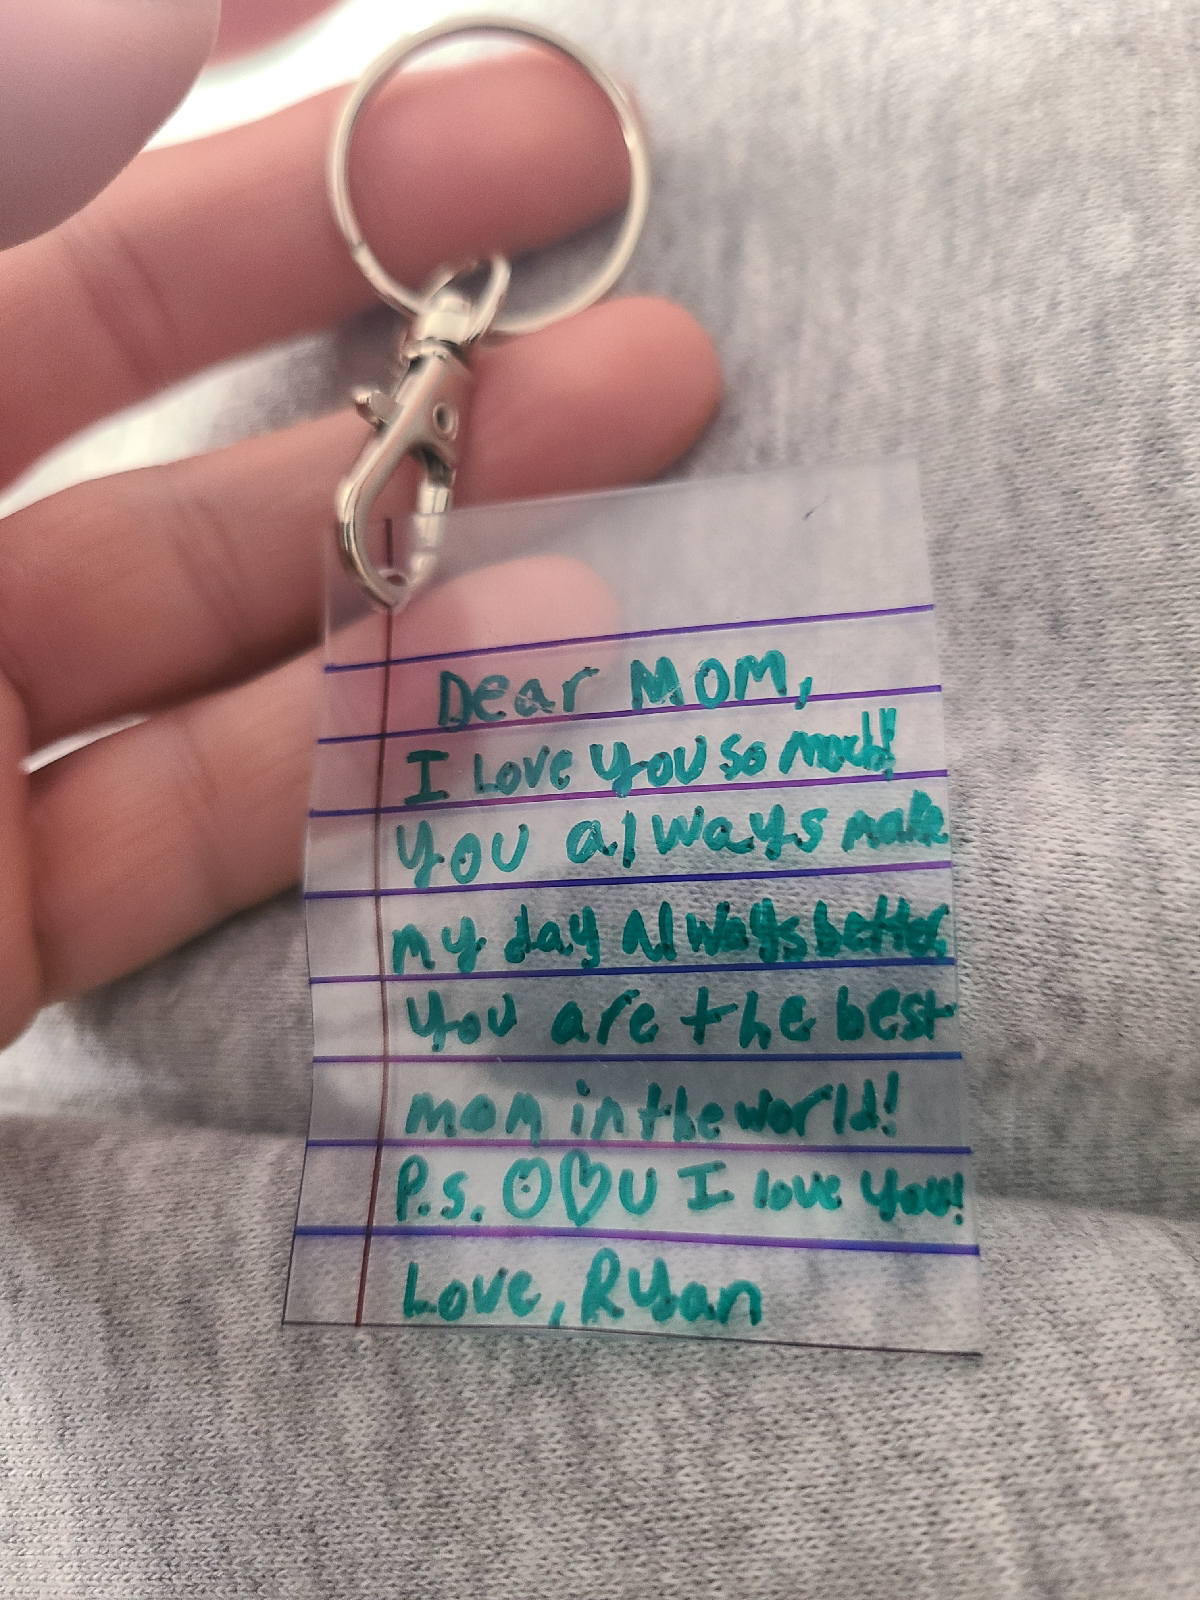 Dear Mom,
I Love you so much!
You always make
my day always better.
You are the best
mom in the world!
P.s. ʘ♡U I love you!
Love, Ryan